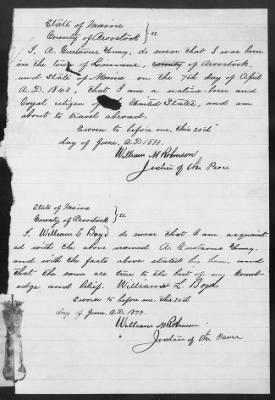 State of Maine
County of Aroostook } ss
I, A. Gustavus Young, do swear that I was born
in the town of Linneus, county of Aroostook,
and State of Maine on the 7th day of April
A.D. 1842, that I am a native-born and
loyal citizen of United States, and am
about to travel abroad.
Sworn to before me, this 20th
day of June, A.D. 1877.
William M Robinson
Justice of the Peace
State of Maine
County of Aroostook } ss
I, William L Boyd do swear that I am acquaint
ed with the above named A. Gustavus Young,
and with the facts above stated by him, and
that the same are true to the best of my knowl-
edge and belief. William L. Boyd
Sworn to before me, this 20th
day of June, A.D. 1877
William M Robinson
Justice of the Peace